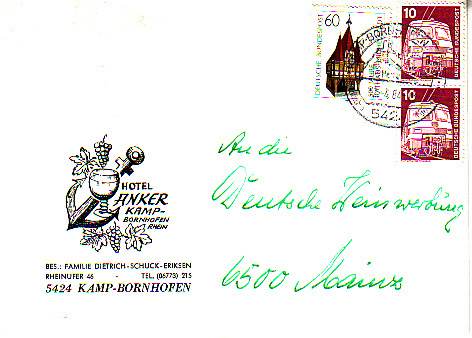 60
DEUTSCHE BUNDESPOST
10
DEUTSCHE BUNDESPOST
10
DEUTSCHE BUNDESPOST
HOTEL
ANKER
KAMP-
BORNHOFEN
RHEIN
BES.: FAMILIE DIETRICH-SCHUCK-ERIKSEN
RHEINUFER 46 - TEL. (06773) 215
5424 KAMP-BORNHOFEN
An die
Deutsche Weinwerbung
6500 Mainz